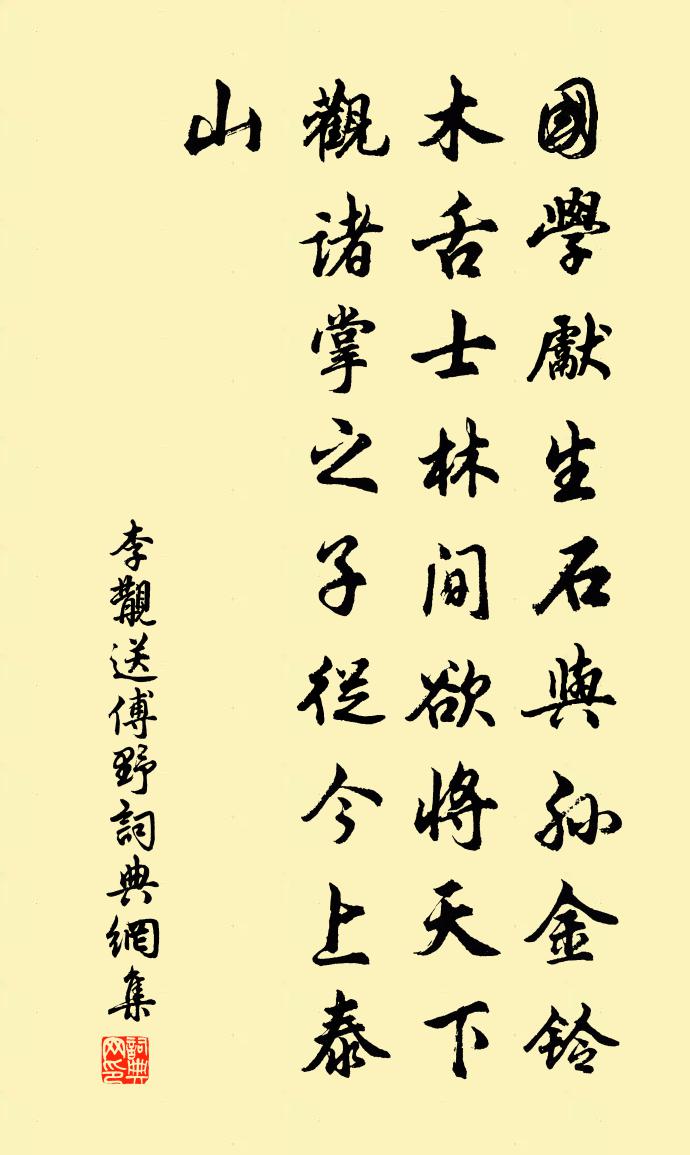 國學獻生石與孙金鈴
木舌士林間欲將天下
觀诸掌之子從今上泰
山
李觀送傅野詞典網集
詞典网印